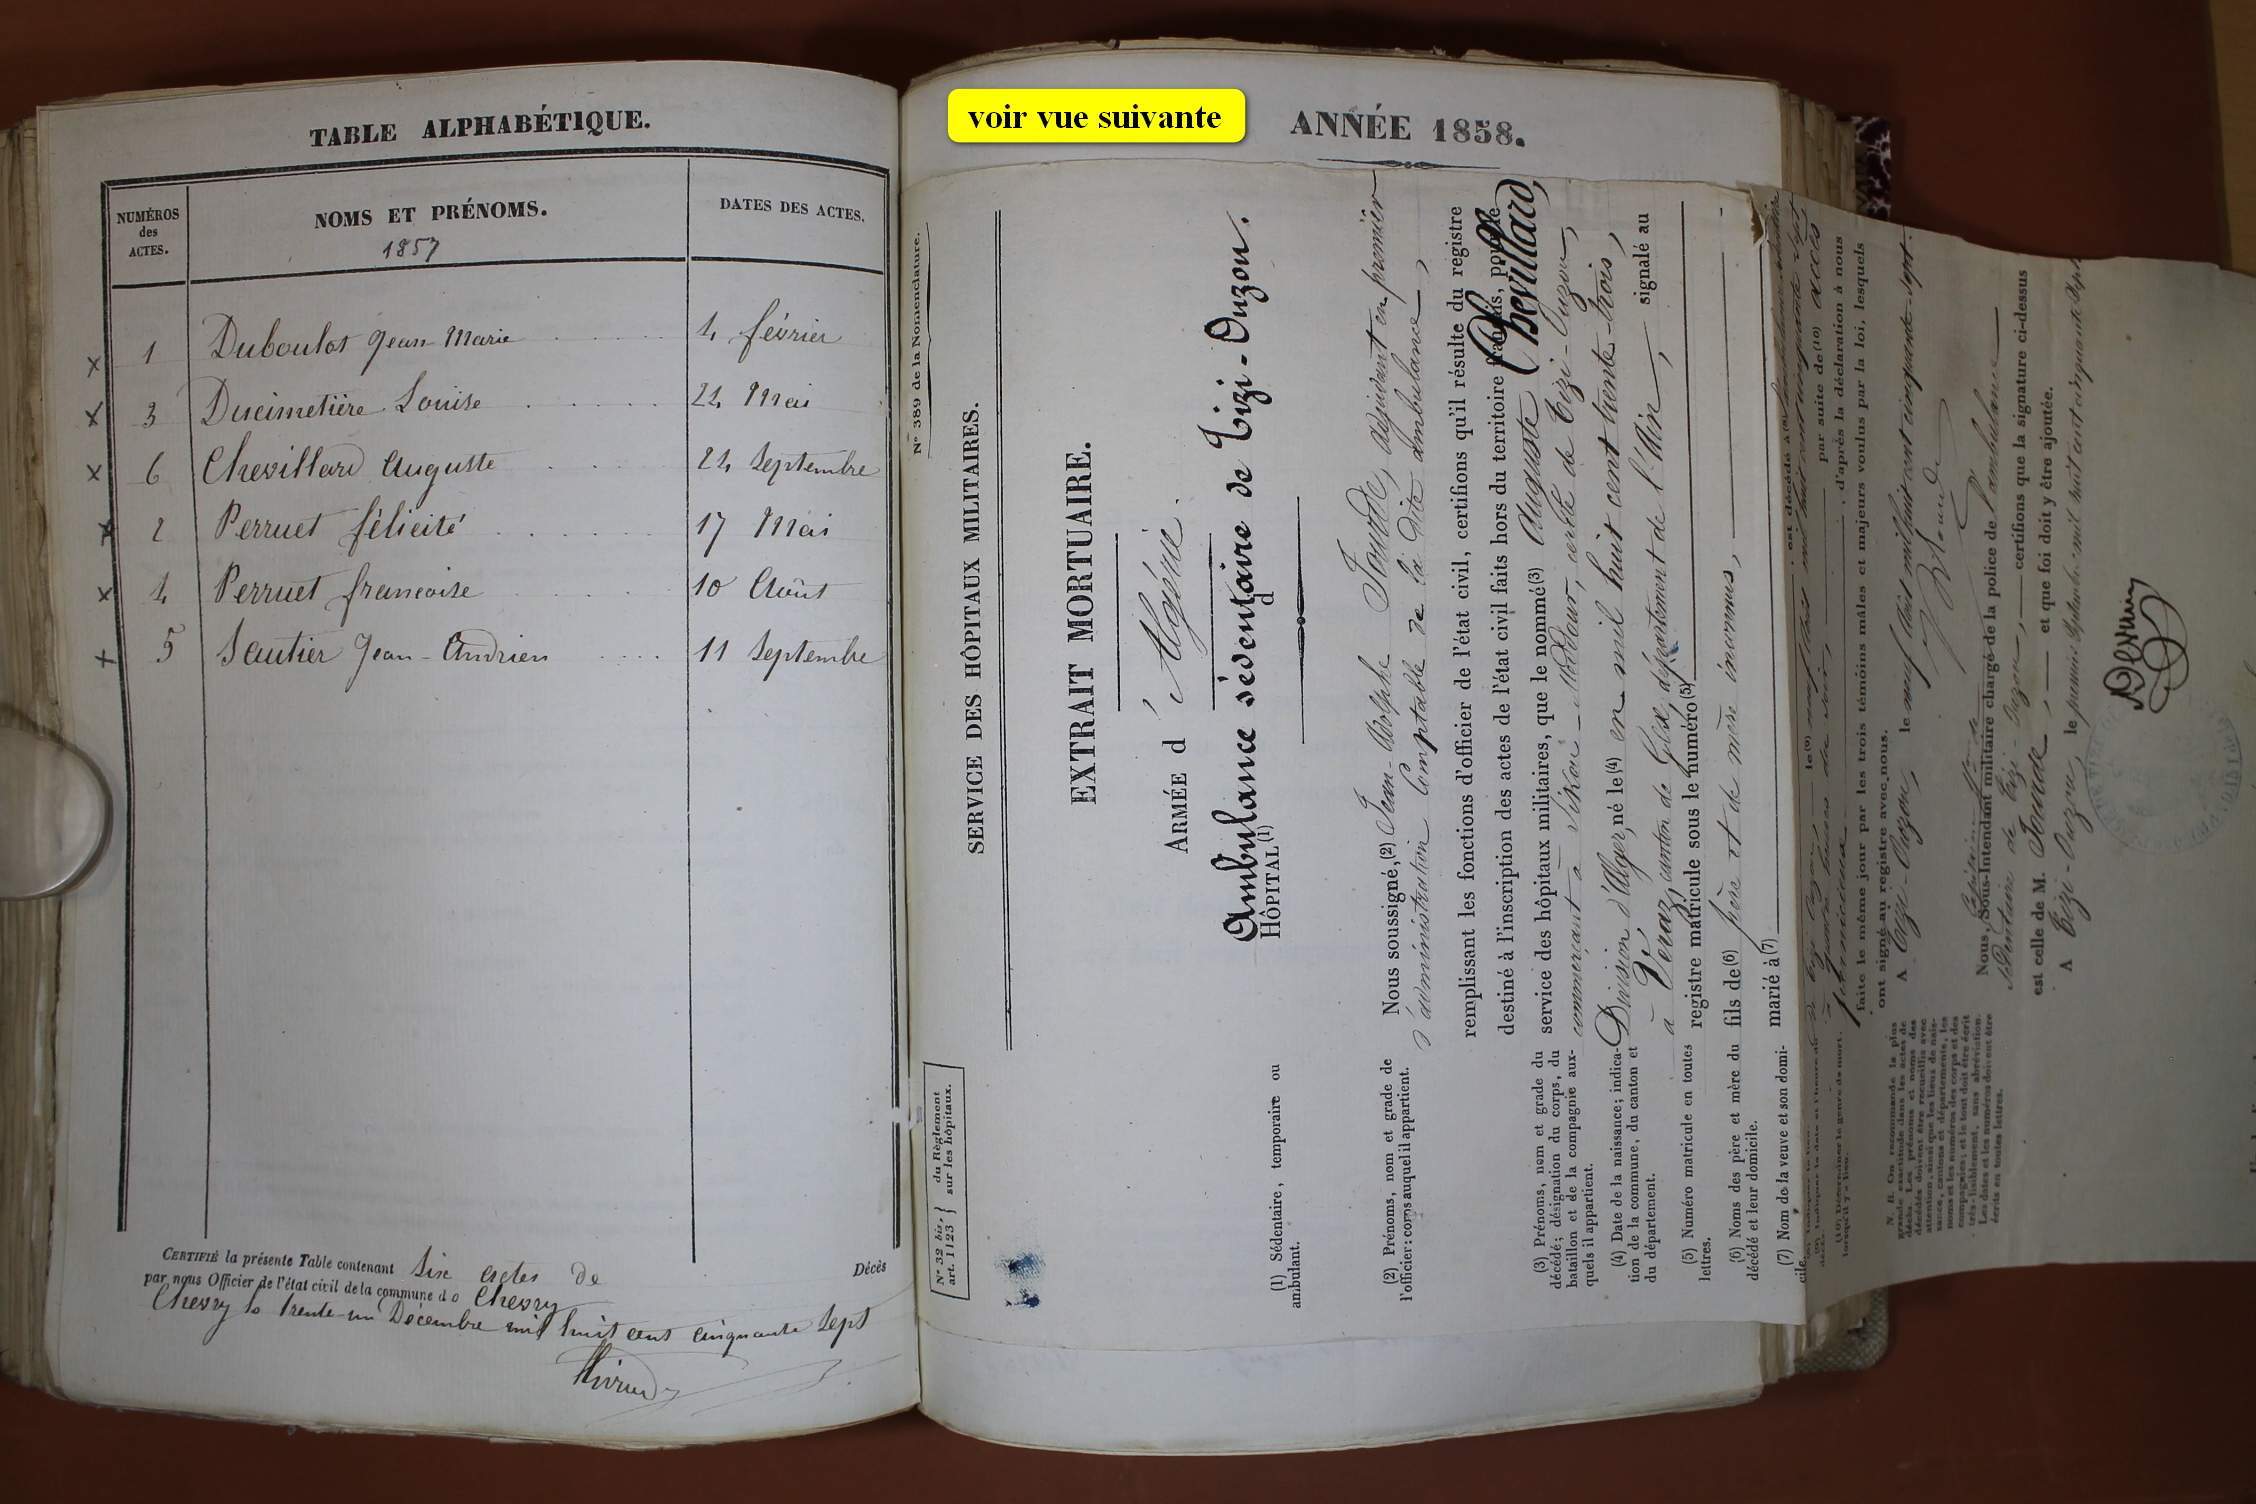 TABLE ALPHABÉTIQUE.
NUMÉROS
des
ACTES.
NOMS ET PRÉNOMS.
1857
DATES DES ACTES.
1 Duboulot Jean Marie 4 février
3 Ducimetière Louise 22 Mai
6 Chevillard Auguste 22 Septembre
2 Perruet félicité 17 Mai
4 Perruet françoise 10 Août
5 Sautier Jean-Andrien 11 Septembre
CERTIFIÉ la présente Table contenant Six actes de Décès
par nous Officier de l'état civil de la commune de Chevry
Chevry le trente un Décembre mil huit cent cinquante sept
voir vue suivante
ANNÉE 1858.
N° 32 bis. du Règlement
art. 1123 sur les hôpitaux.
N° 389 de la Nomenclature.
SERVICE DES HÔPITAUX MILITAIRES.
EXTRAIT MORTUAIRE.
ARMÉE d'Algérie.
Ambulance sédentaire de Tizi-Ouzou.
HÔPITAL (1) d
Nous soussigné, (2) Jean-Adolphe Jourde, adjudant en premier
d'administration Comptable de la dite ambulance,
remplissant les fonctions d'officier de l'état civil, certifions qu'il résulte du registre
destiné à l'inscription des actes de l'état civil faits hors du territoire français, pour le
service des hôpitaux militaires, que le nommé (3) Auguste Chevillard
commerçant à Sikou-Moddour, cercle de Tizi-Ouzou,
Division d'Alger, né le (4) en mil huit cent trente-trois,
à Véraz, canton de Gex, département de l'Ain, signalé au
registre matricule sous le numéro (5)
fils de (6) père et de mère inconnus,
marié à (7)
est décédé à (8)
le (9) neuf Août mil huit cent cinquante sept
par suite de (10) accès
pernicieux , d'après la déclaration à nous
faite le même jour par les trois témoins mâles et majeurs voulus par la loi, lesquels
ont signé au registre avec nous.
A Tizi-Ouzou, le neuf Août mil huit cent cinquante-sept.
Jourde
Nous, Sous-Intendant militaire chargé de la police de l'ambulance
sédentaire de Tizi-Ouzou, certifions que la signature ci-dessus
est celle de M. Jourde, et que foi doit y être ajoutée.
A Tizi-Ouzou, le premier Septembre mil huit cent cinquante sept
(1) Sédentaire, temporaire ou
ambulant.
(2) Prénoms, nom et grade de
l'officier: corps auquel il appartient.
(3) Prénoms, nom et grade du
décédé; désignation du corps, du
bataillon et de la compagnie aux-
quels il appartient.
(4) Date de la naissance; indica-
tion de la commune, du canton et
du département.
(5) Numéro matricule en toutes
lettres.
(6) Noms des père et mère du
décédé et leur domicile.
(7) Nom de la veuve et son domi-
cile.
(10) Déterminer le genre de mort,
lorsqu'il y a lieu.
N. B. On recommande la plus
grande exactitude dans les actes de
décès. Les prénoms et noms des
décédés doivent être recueillis avec
attention, ainsi que les lieux de nais-
sance, cantons et départements, les
noms et les numéros des corps et des
compagnies; et le tout doit être écrit
très-lisiblement, sans abréviation.
Les dates et les numéros doivent être
écrits en toutes lettres.